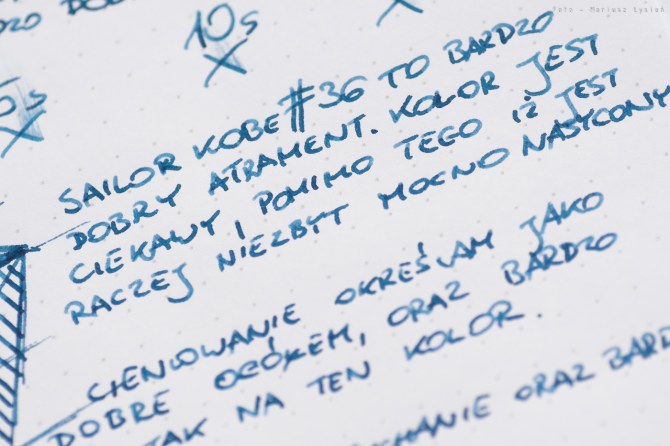 Foto - Mariusz Łysień
10s
SAILOR KOBE #36 TO BARDZO
DOBRY ATRAMENT. KOLOR JEST
CIEKAWY, POMIMO TEGO IŻ JEST
RACZEJ NIEZBYT MOCNO NASYCONY
CIENIOWANIE OKREŚLAM JAKO
DOBRE OGÓŁEM, ORAZ BARDZO
TAK NA TEN KOLOR.
ORAZ